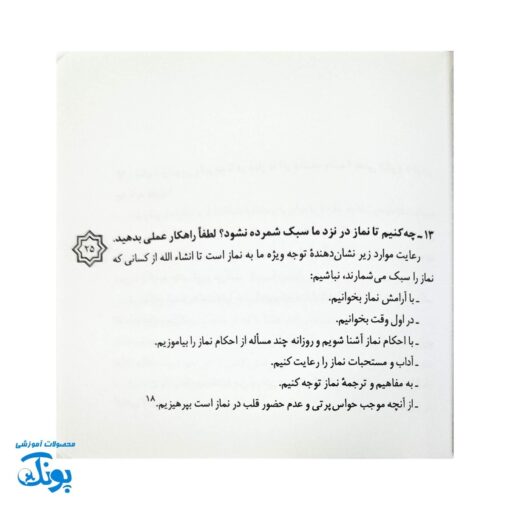 ۱۳ـ چه کنیم تا نماز در نزد ما سبک شمرده نشود؟ لطفاً راهکار عملی بدهید.
۲۵
رعایت موارد زیر نشان‌دهندهٔ توجه ویژه ما به نماز است تا انشاء الله از کسانی که
نماز را سبک می‌شمارند، نباشیم:
ـ با آرامش نماز بخوانیم.
ـ در اول وقت بخوانیم.
ـ با احکام نماز آشنا شویم و روزانه چند مسأله از احکام نماز را بیاموزیم.
ـ آداب و مستحبات نماز را رعایت کنیم.
ـ به مفاهیم و ترجمهٔ نماز توجه کنیم.
ـ از آنچه موجب حواس‌پرتی و عدم حضور قلب در نماز است بپرهیزیم.۱۸
محصولات آموزشی
پونک